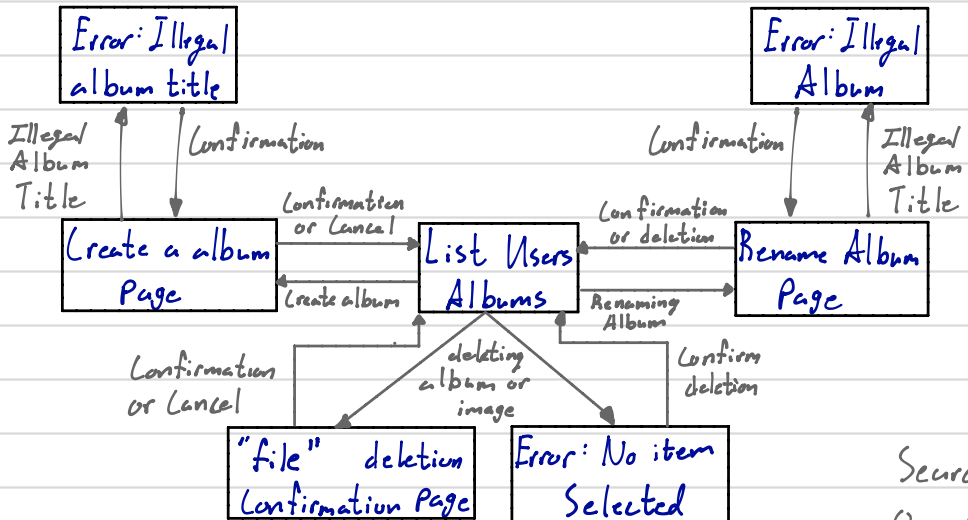 Error: Illegal
album title
Error: Illegal
Album
Illegal
Album
Title
Confirmation
Confirmation
Illegal
Album
Title
Create a album
Page
Confirmation
or Cancel
Create album
List Users
Albums
Confirmation
or deletion
Renaming
Album
Rename Album
Page
Confirmation
or Cancel
deleting
album or
image
Confirm
deletion
"file" deletion
Confirmation Page
Error: No item
Selected